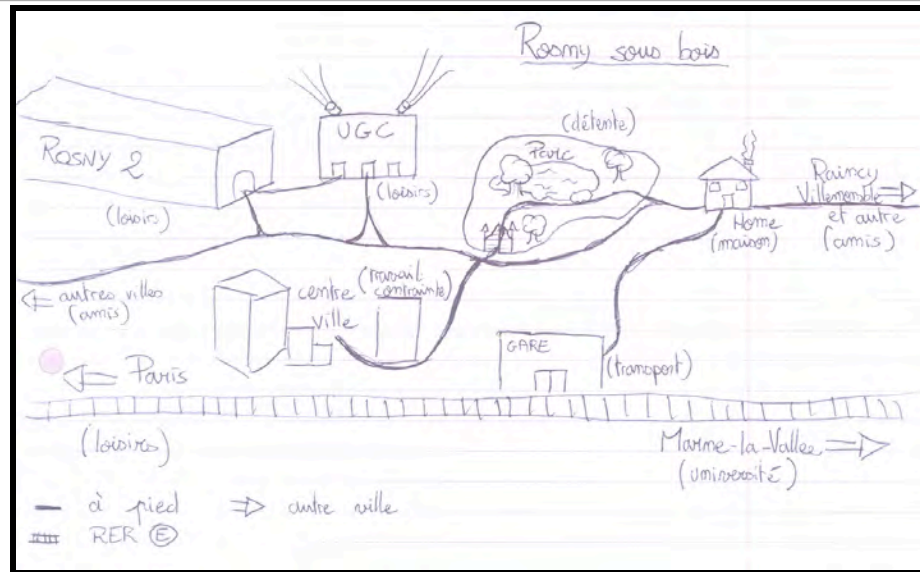 Rosny sous bois
UGC
(loisirs)
ROSNY 2
(loisirs)
(détente)
Parc
Raincy
Villemomble
et autre
(amis)
Home
(maison)
autres villes
(amis)
centre
ville
(travail
contrainte)
GARE
(transport)
Paris
(loisirs)
Marne-la-Vallée
(université)
à pied
autre ville
RER E